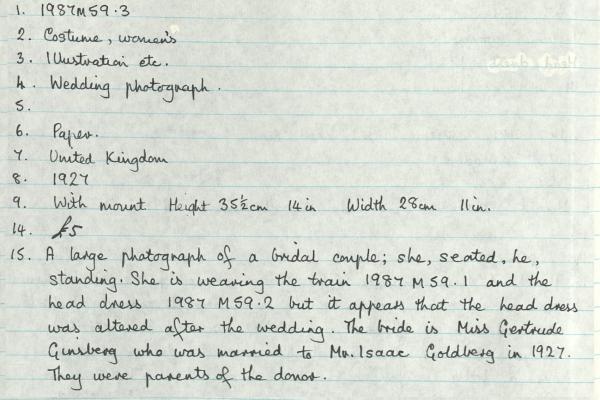 1. 1987M59.3
2. Costume, women's
3. Illustration etc.
4. Wedding photograph.
5.
6. Paper.
7. United Kingdom
8. 1927
9. With mount Height 35½cm 14in Width 28cm 11in.
14. £5
15. A large photograph of a bridal couple; she, seated, he,
standing. She is wearing the train 1987 M59.1 and the
head dress 1987 M59.2 but it appears that the head dress
was altered after the wedding. The bride is Miss Gertrude
Ginsberg who was married to Mr. Isaac Goldberg in 1927.
They were parents of the donor.